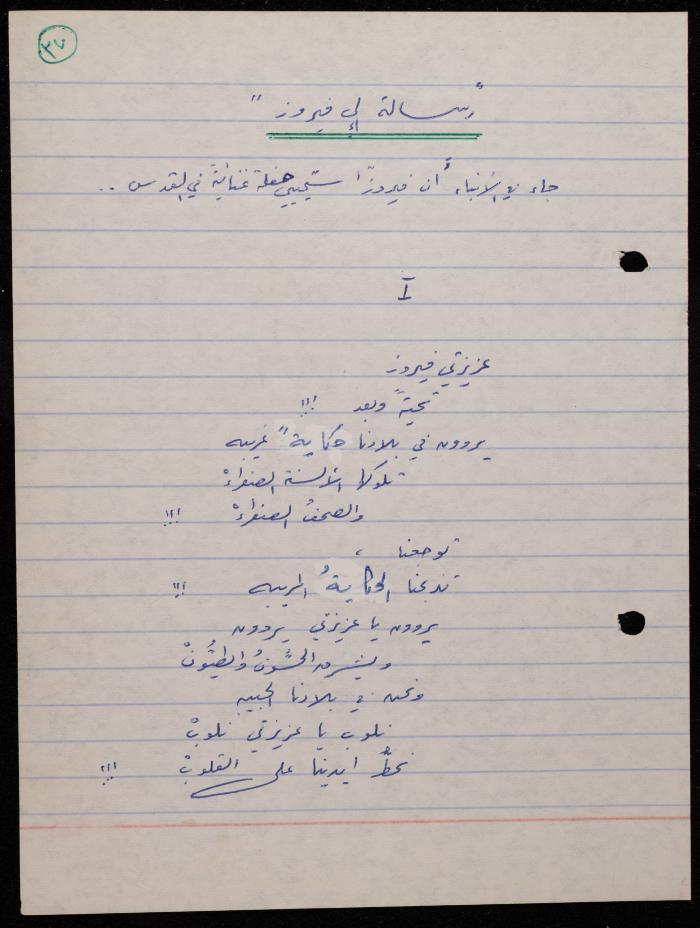 ٣٧
"رسالة إلى فيروز"
جاء في الأنباء أن فيروزًا ستحيي حفلة غنائية في القدس ..
I
عزيزتي فيروز
تحيةً وبعد !!!
يروون في بلادنا حكايةً غريبه
تلوكها الألسنة الصفراءْ
والصحفُ الصفراءْ !!!
توجعنا ،
تذبحنا الحكايةُ المريبه !!!
يروون يا عزيزتي يروون
ونحن في بلادنا الحبيبه
نلوب يا عزيزتي نلوبْ
نحطُّ ايدينا على القلوبْ !!!